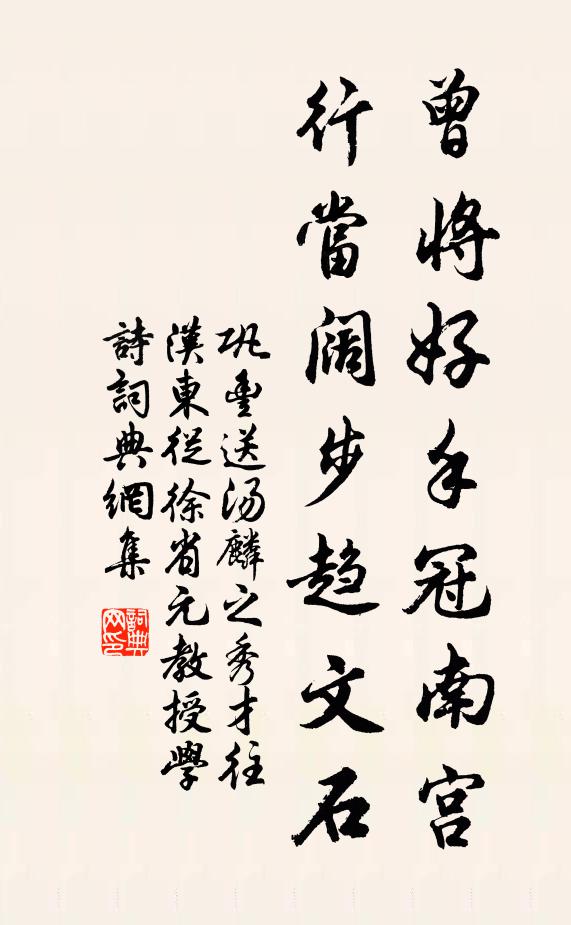 曾將好手冠南宮
行當闊步趋文石
巩豊送湯麟之秀才往
漢東從徐省元教授學
詩詞典網集
詞典
网印